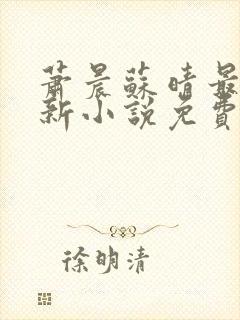 蕭晨蘇晴最
新小說免費
徐明清